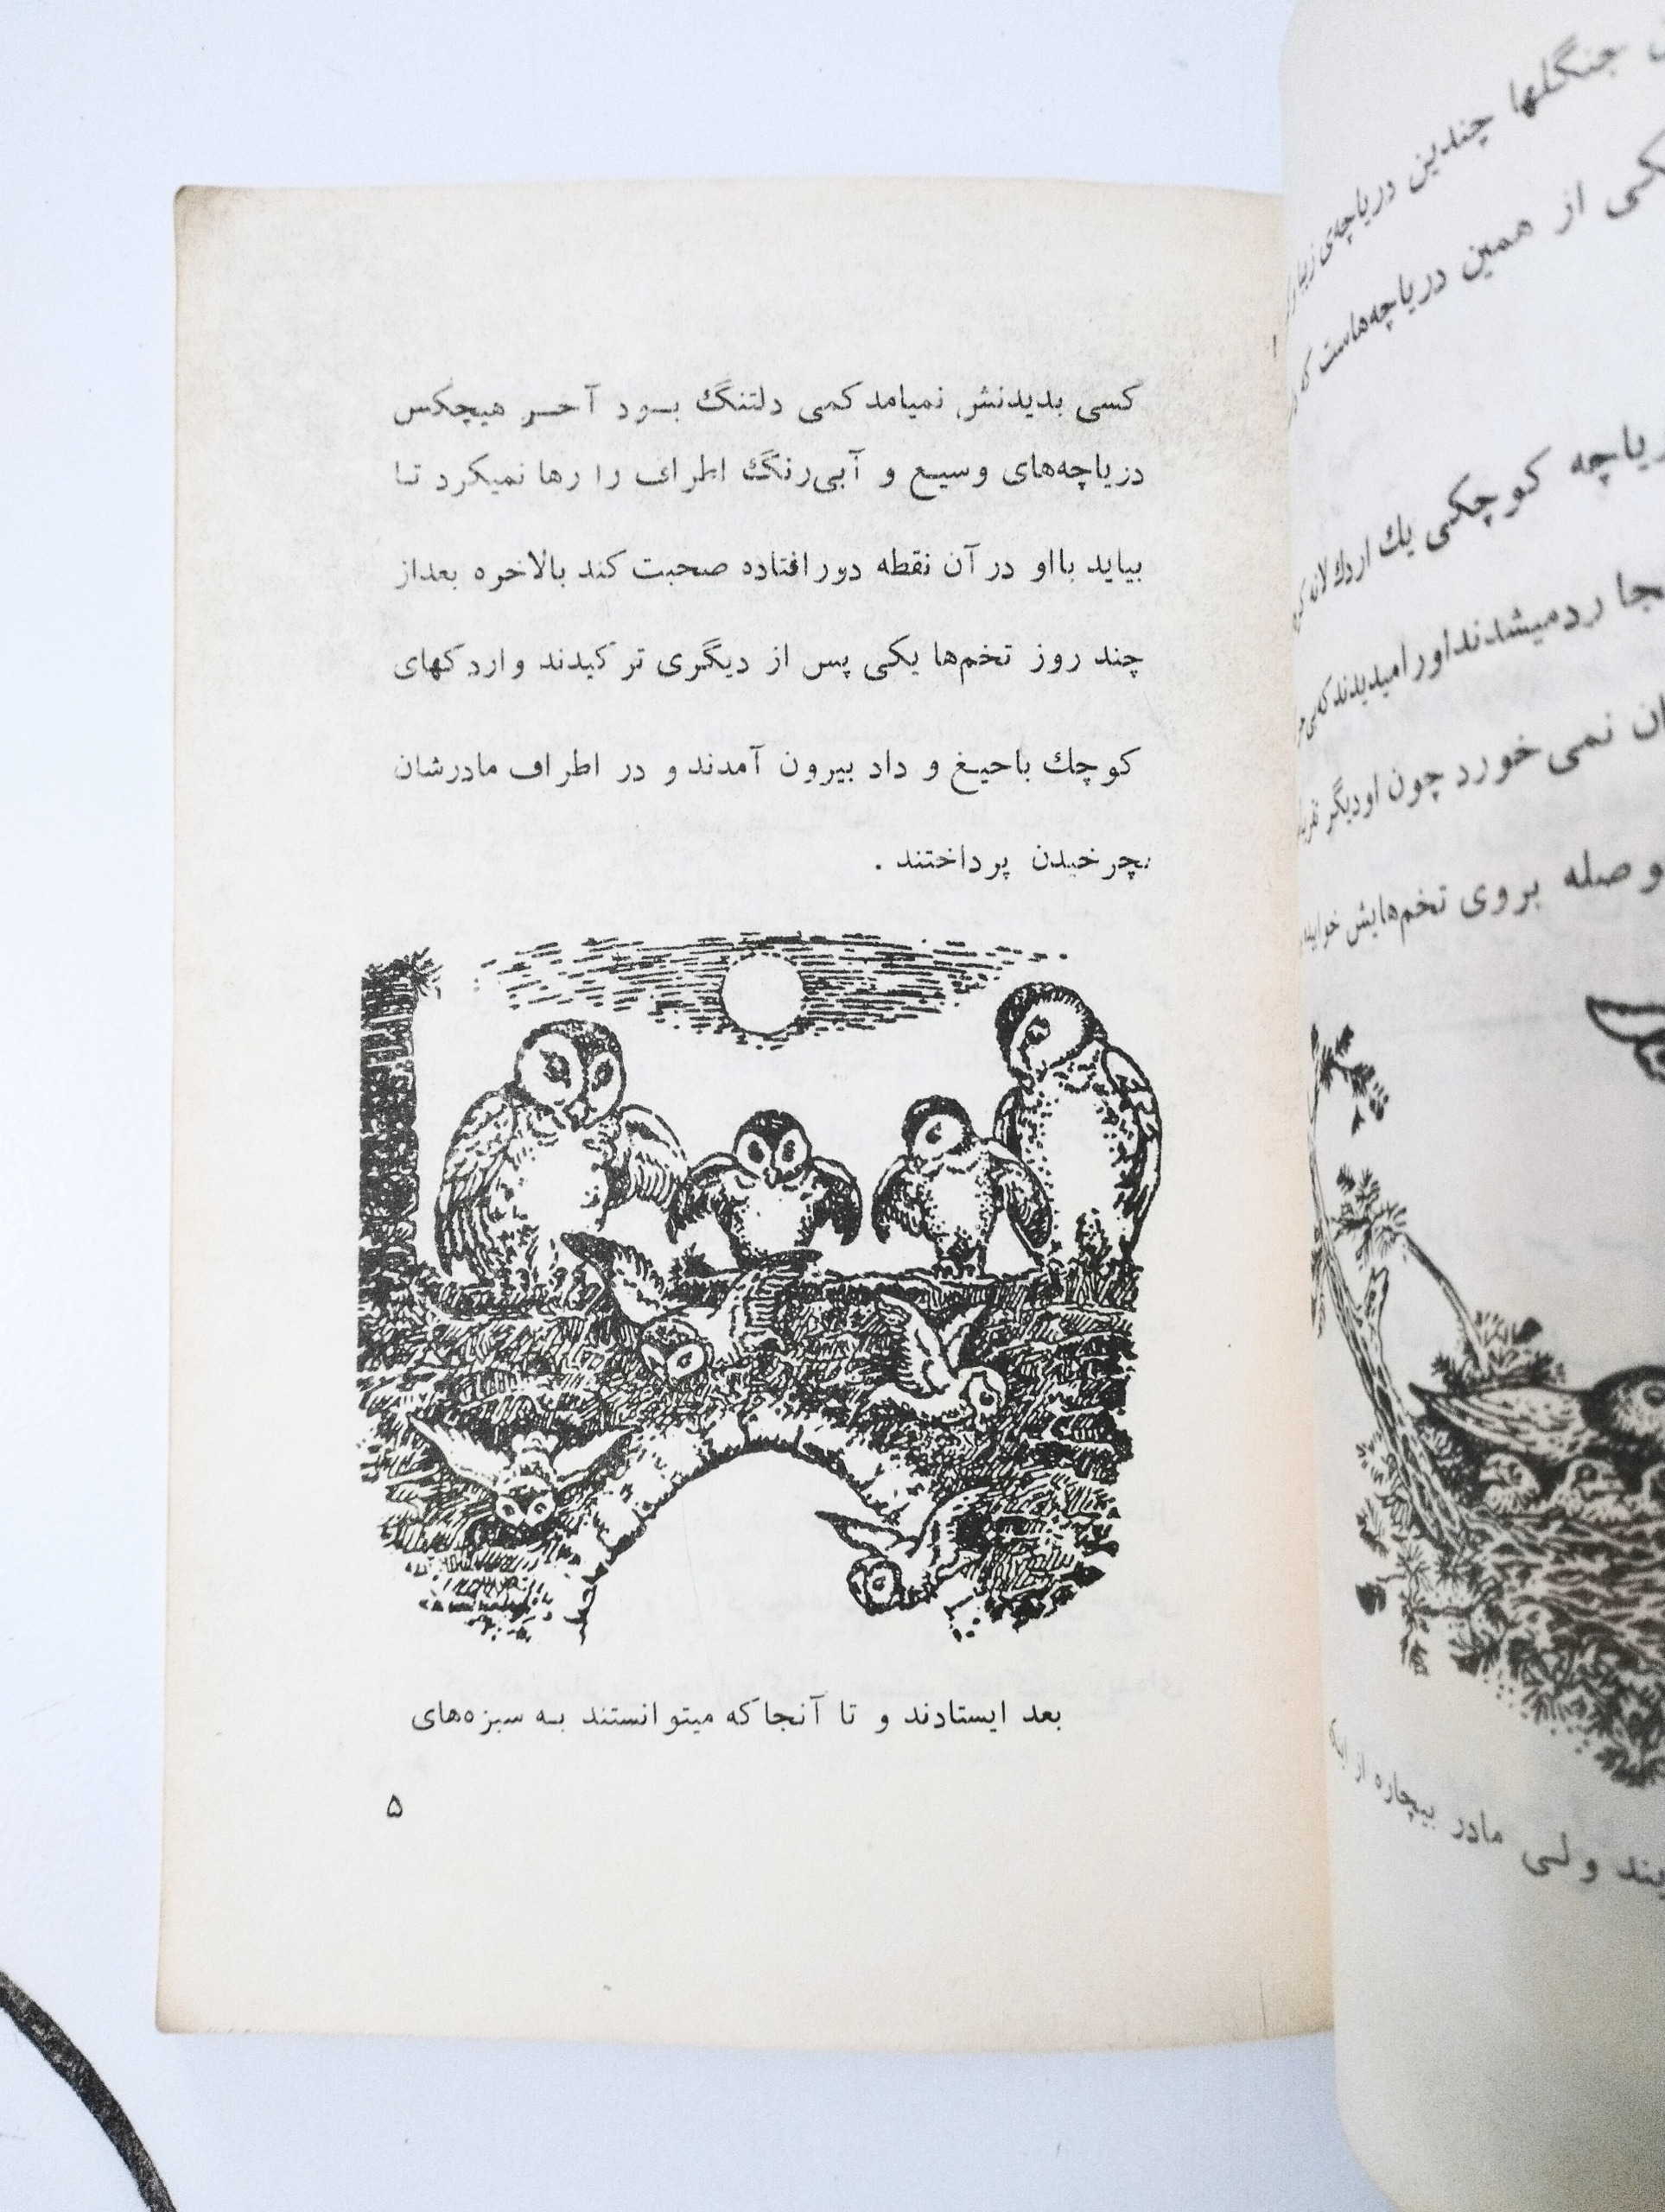 جنگلها چندین دریاچه‌ی
از همین دریاچه‌هاست که
کوچکی یك اردك لانه
ردمیشدنداورامیدیدند
نمی‌خورد چون اودیگر
بروی تخم‌هایش
ولی مادر بیچاره از
کسی بدیدنش نمیامد کمی دلتنگ بود آخر هیچکس
دریاچه‌های وسیع و آبی‌رنگ اطراف را رها نمیکرد تا
بیاید بااو در آن نقطه دورافتاده صحبت کند بالاخره بعداز
چند روز تخم‌ها یکی پس از دیگری ترکیدند واردکهای
کوچك باجیغ و داد بیرون آمدند و در اطراف مادرشان
بچرخیدن پرداختند .
بعد ایستادند و تا آنجا که میتوانستند به سبزه‌های
۵